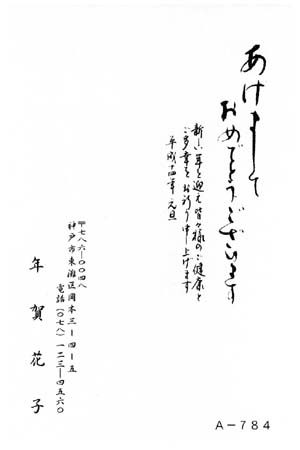 あけまして
おめでとうございます
新しい年を迎え皆々様のご健康と
ご多幸をお祈り申し上げます
平成十四年 元旦
〒七八六―〇〇四八
神戸市東灘区岡本三―四―五
電話(〇七八)一二三―四五六〇
年賀花子
A-784